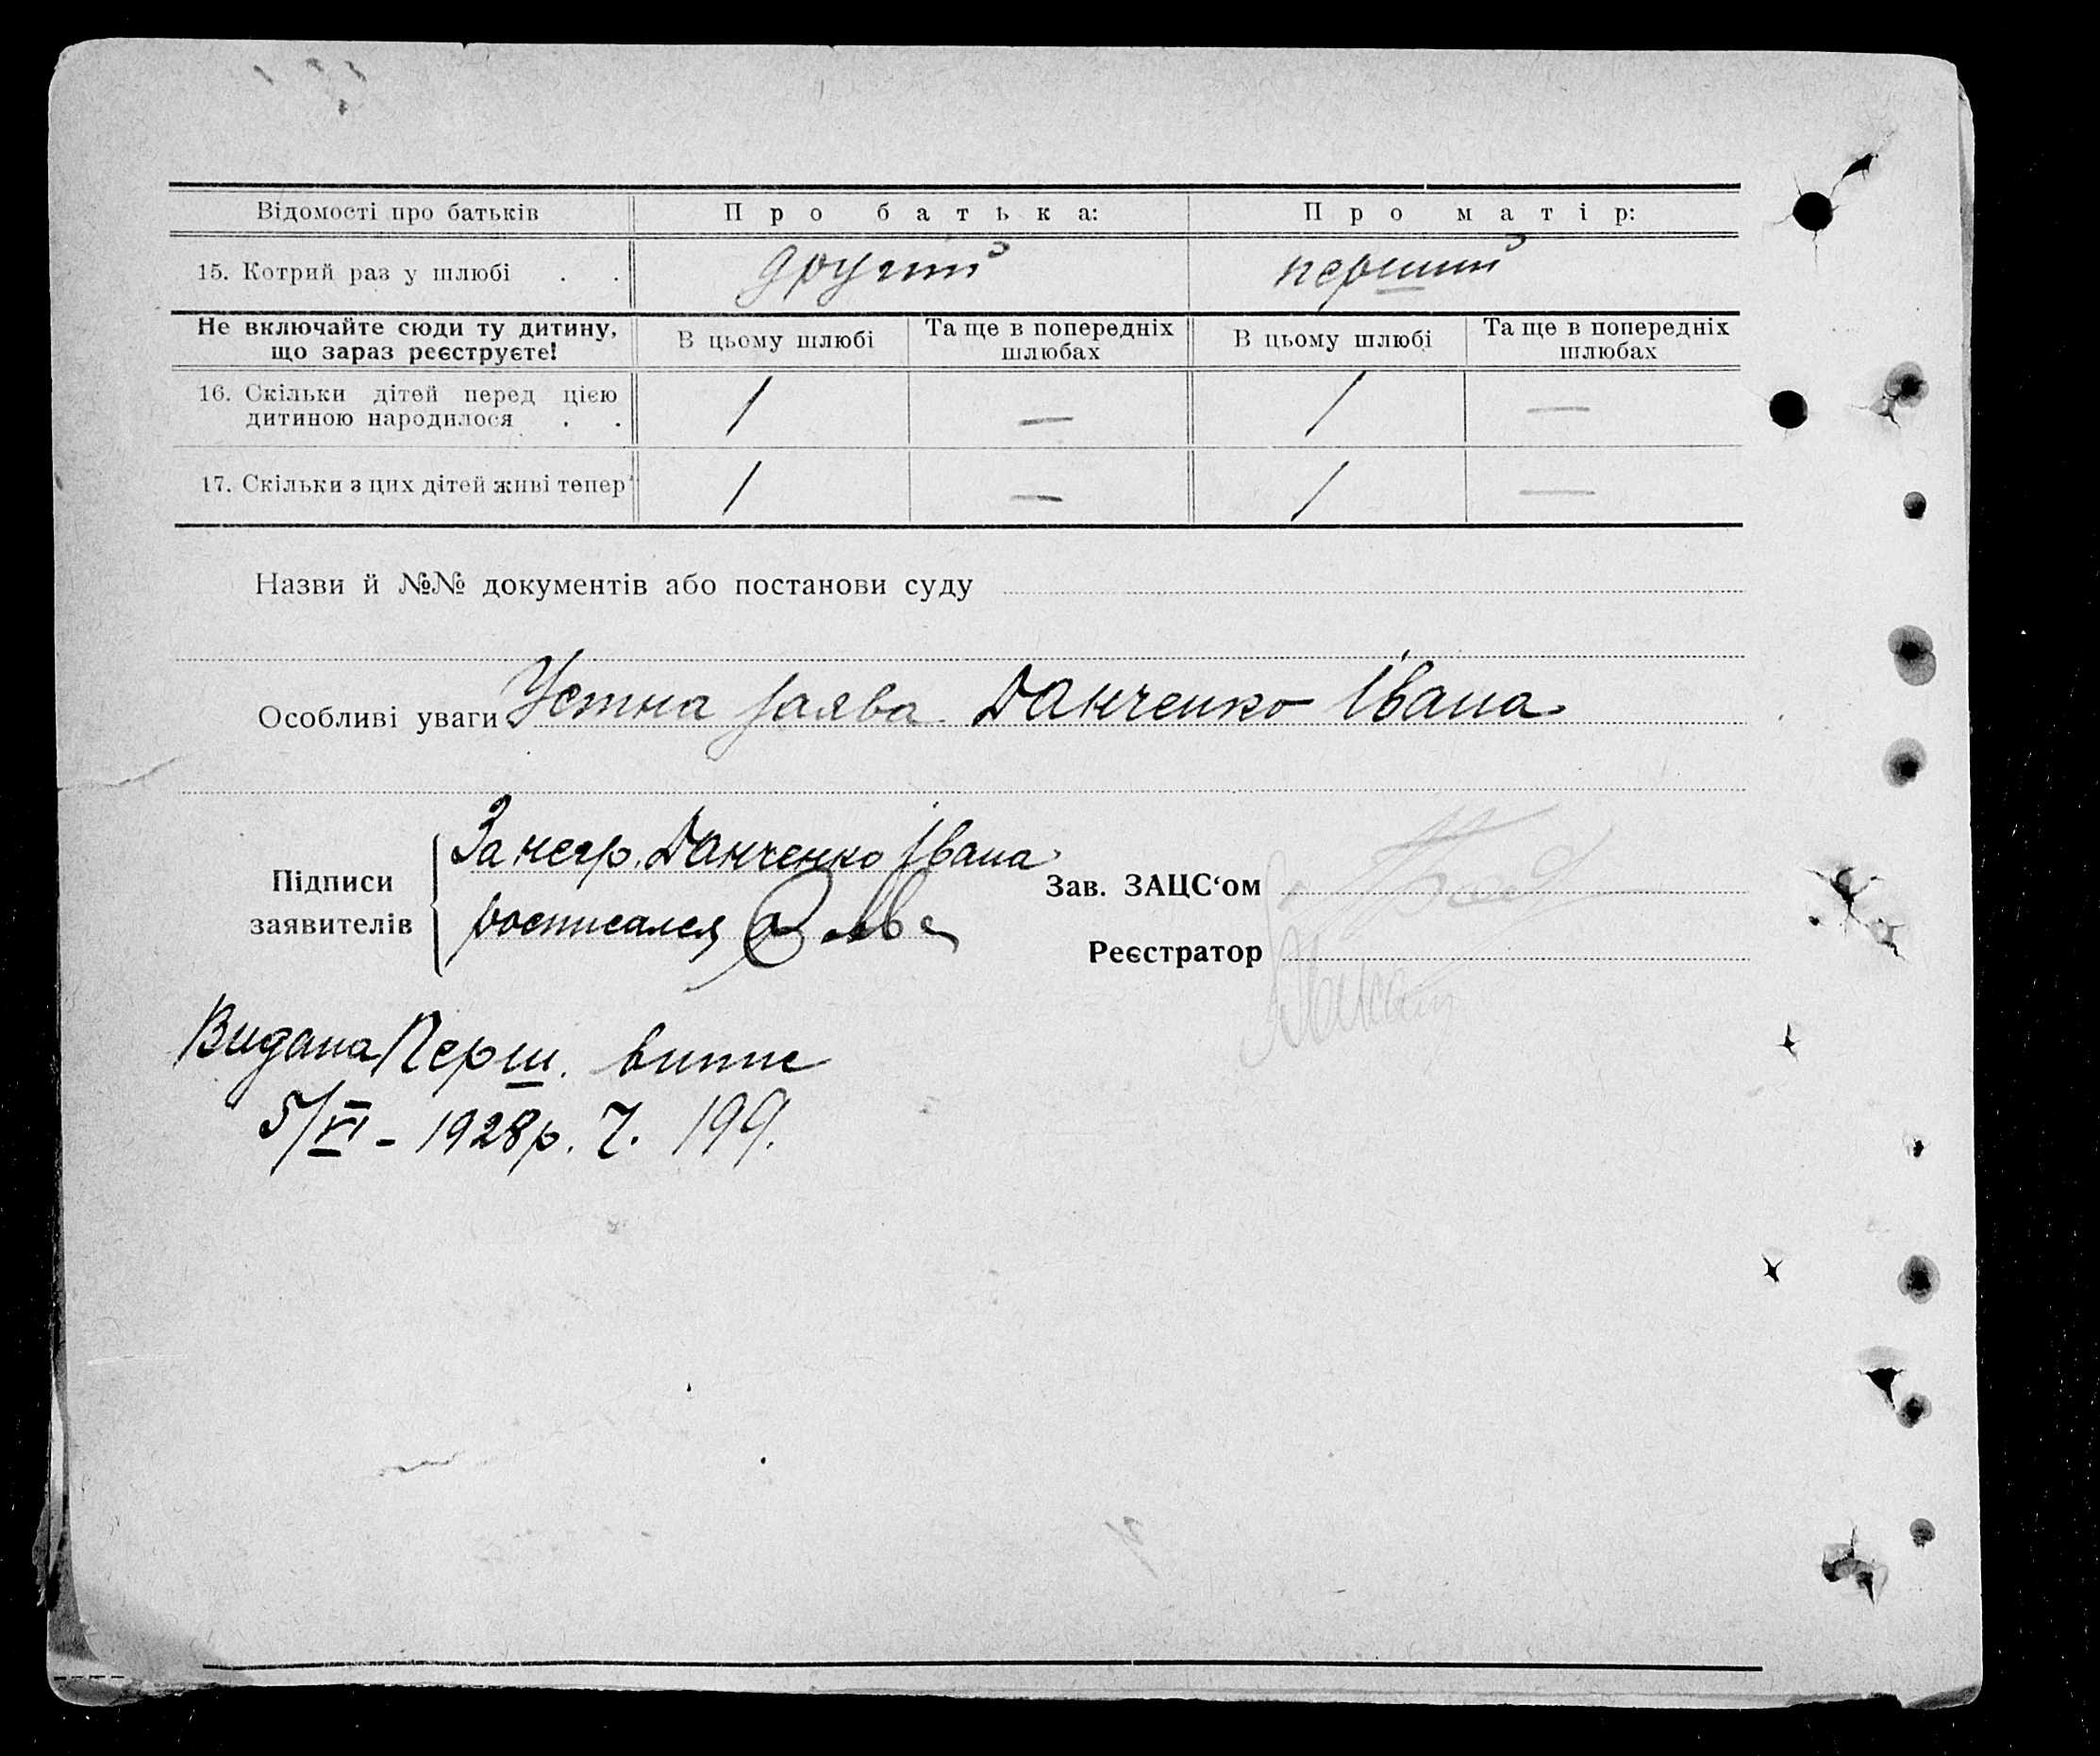 Відомості про батьків	Про батька:	Про матір:
15. Котрий раз у шлюбі . .	другий	перший
Не включайте сюди ту дитину, що зараз реєструєте!	В цьому шлюбі	Та ще в попередніх шлюбах	В цьому шлюбі	Та ще в попередніх шлюбах
16. Скільки дітей перед цією дитиною народилося . .	1	—	1	—
17. Скільки з цих дітей живі тепер	1	—	1	—
Назви й №№ документів або постанови суду
Особливі уваги Устна заява Данченко Івана
Підписи заявителів
За негр. Данченко Івана
росписался
Зав. ЗАЦС‘ом
Реєстратор
Видана Перш. випис
5/VI - 1928 р. Ч. 199.